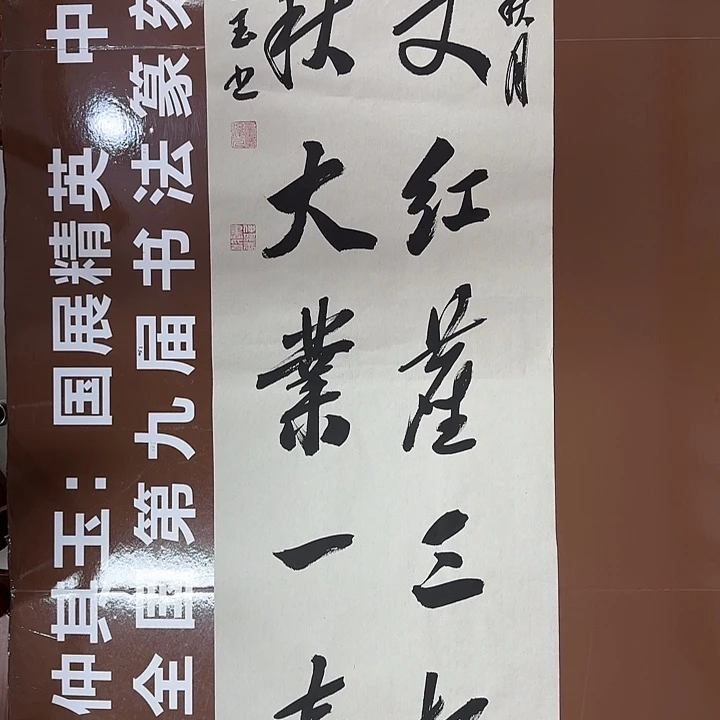 秋月
丈红塵三
秋大業一
玉书
仲其玉：国展精英 中
全国第九届书法篆